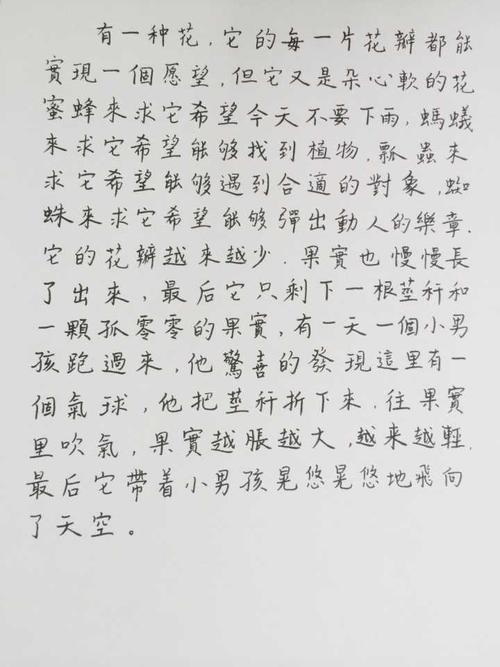 有一种花，它的每一片花瓣都能
實現一個愿望，但它又是朵心軟的花
蜜蜂來求它希望今天不要下雨，螞蟻
来求它希望能够找到植物，瓢蟲来
求它希望能够遇到合適的對象，蜘
蛛来求它希望能够彈出動人的樂章．
它的花瓣越来越少．果實也慢慢長
了出来，最后它只剩下一根莖秆和
一顆孤零零的果實，有一天一個小男
孩跑過来，他驚喜的發現這里有一
個氣球，他把莖秆折下来．往果實
里吹氣，果實越脹越大，越来越輕．
最后它帶着小男孩晃悠晃悠地飛向
了天空。